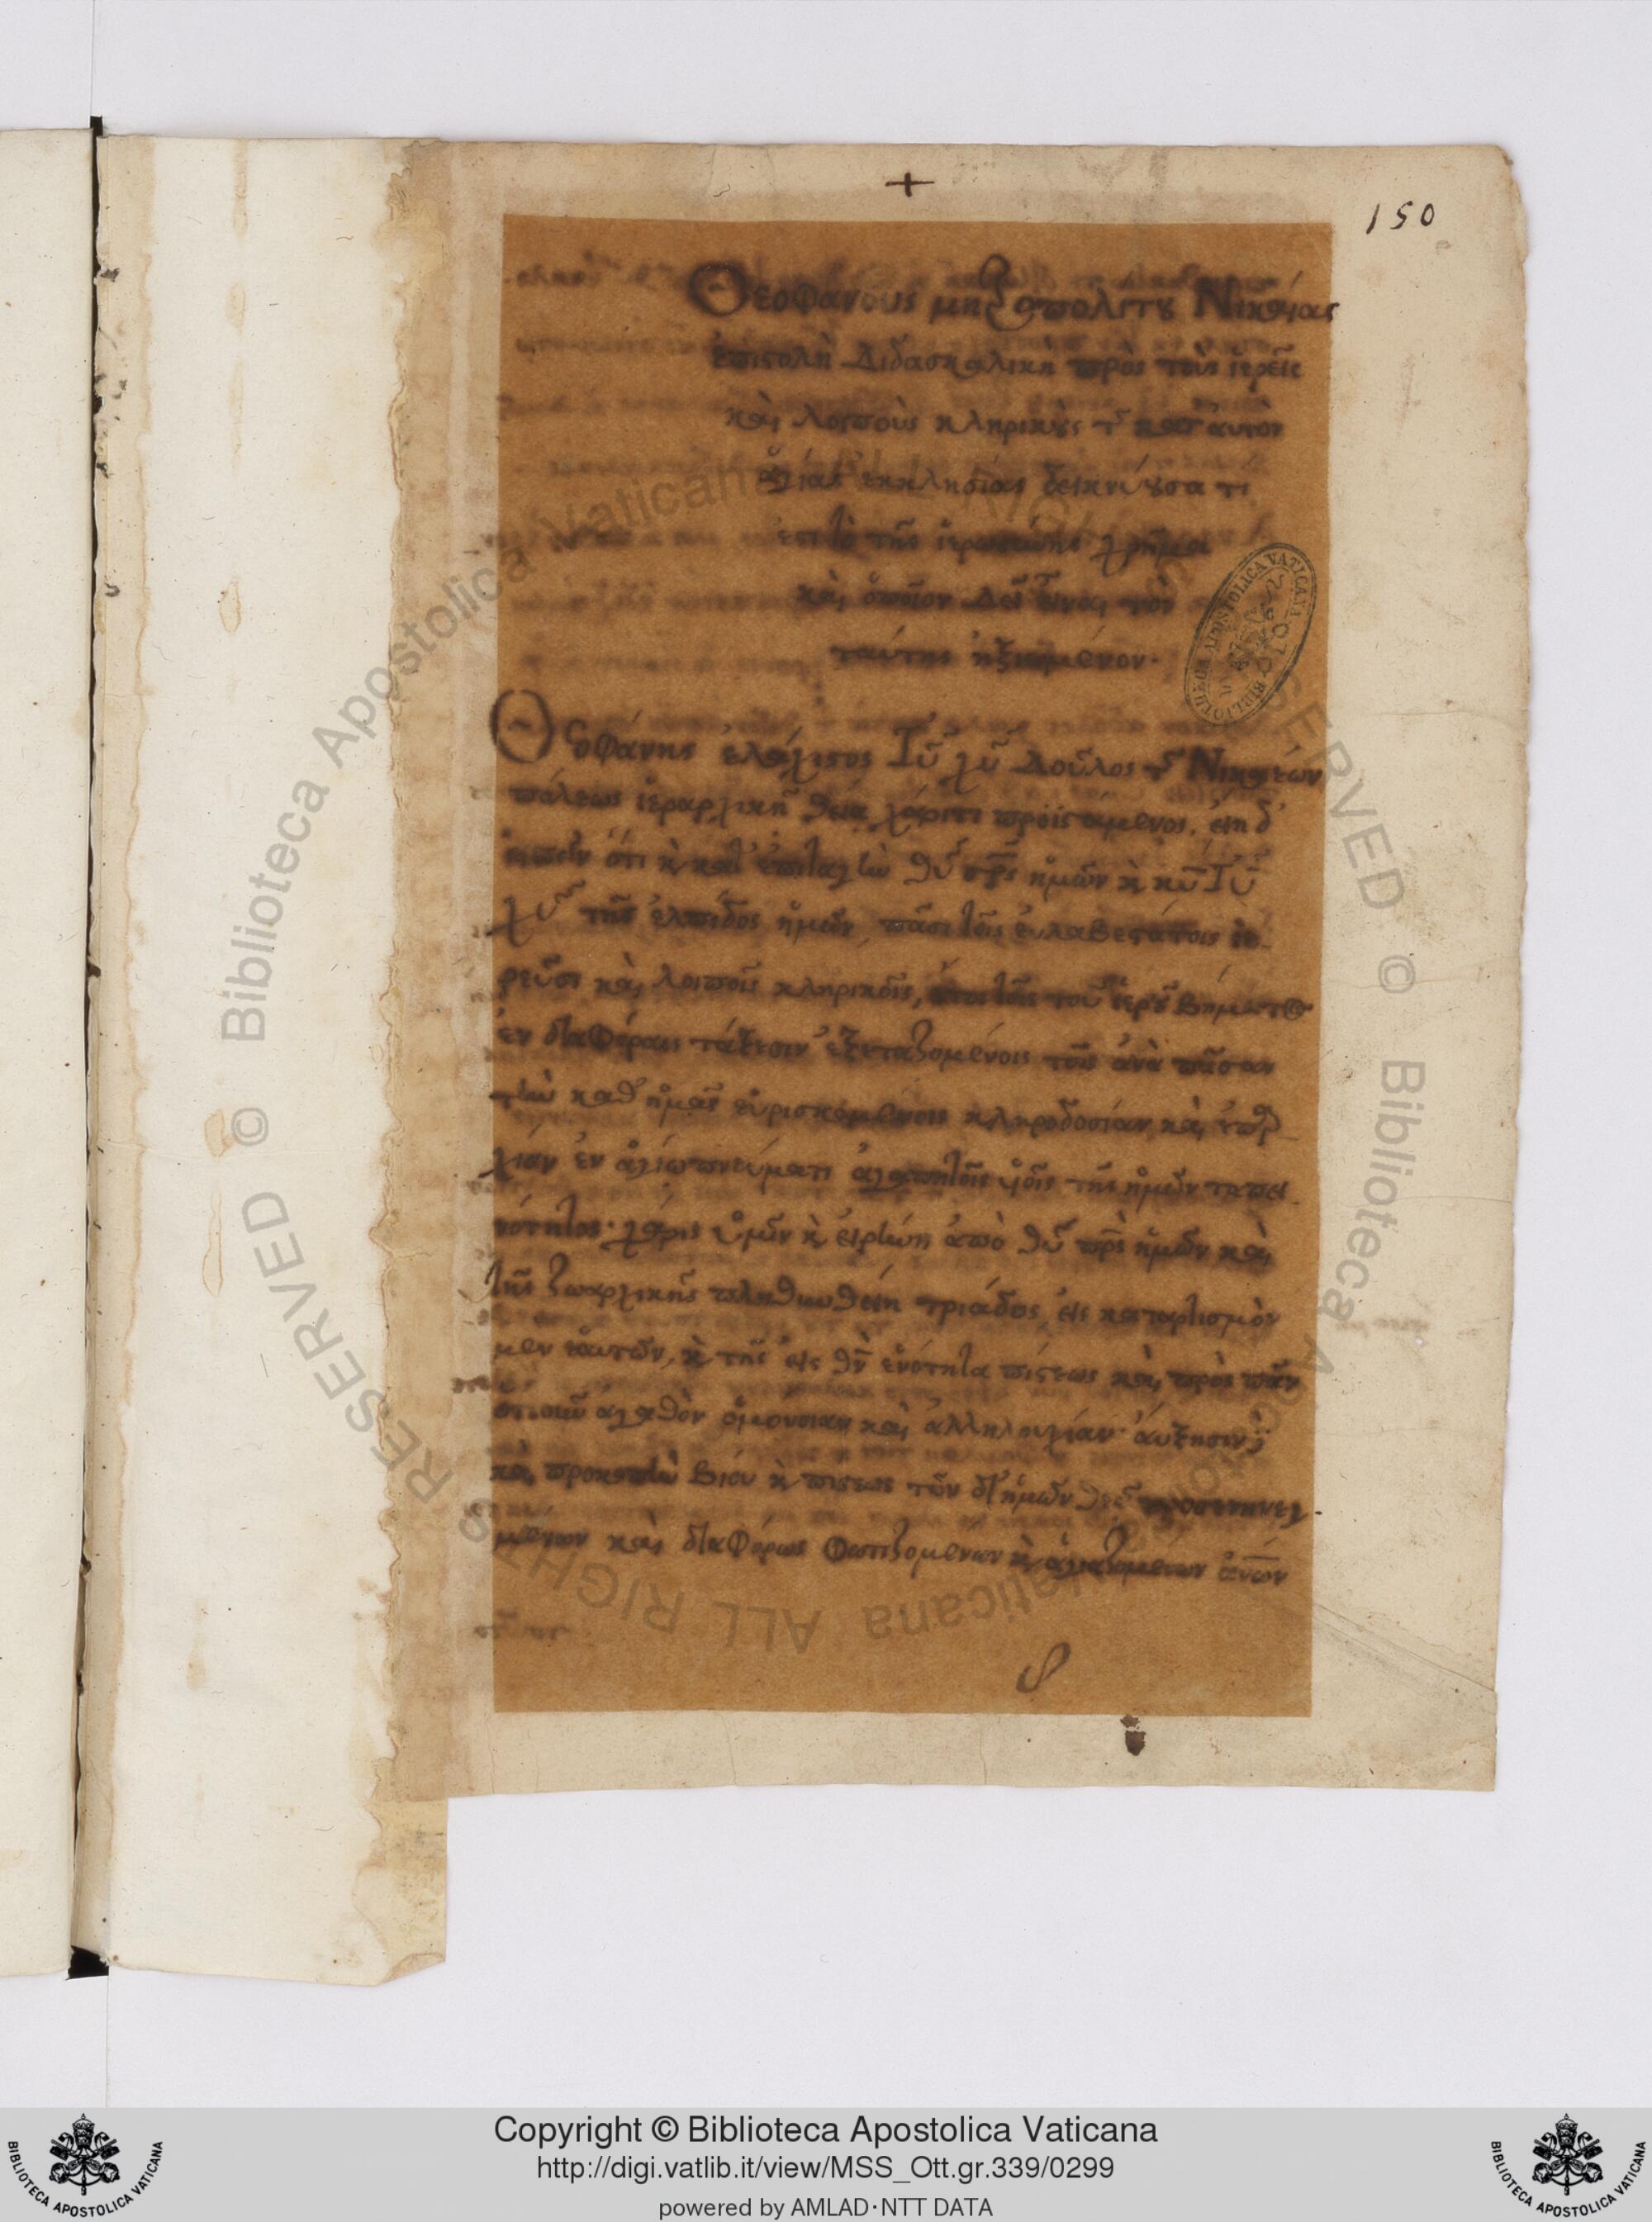 +
150
Θεοφανους μητροπολίτου Νικαίας
ἐπιστολὴ Διδασκαλικὴ πρὸς τοὺς ἱερεῖς
καὶ λοιποὺς κληρικοὺς τῆς κατ αυτὸν
ἁγίας ἐκκλησίας δεικνύουσα τι
ἐστὶ τὸ τῆς ἱερωσύνης χρῆμα
καὶ ὁποῖον Δεῖ εἶναι τὸν
ταύτης ἠξιωμένον·
Θεοφάνης ἐλάχιστος Ἰῦ χῦ Δοῦλος τῆς Νικαιέων
πόλεως ἱεραρχικῆ θεία χάριτι προϊστάμενος, εἴη δ'
εἰπεῖν ὅτι κ κατ ἐπιταγὴν θῦ πρς ἡμῶν κ κῦ Ἰῦ
χῦ τῆς ἐλπίδος ἡμῶν, πᾶσι τοῖς εὐλαβεστάτοις ἱε-
ρεῦσι καὶ λοιποῖς κληρικοῖς, τοῦ ἱεροῦ βήματος
ἐν διαφόραις τάξεσιν ἐξεταζομένοις τοῖς ἀνὰ πᾶσαν
τὴν καθ ἡμᾶς εὑρισκομένοις κληροδοσίαν καὶ ἐπαρ-
χίαν ἐν ἁγίω πνεύματι ἀγαπητοῖς υἱοῖς τῆς ἡμῶν ταπει-
νότητος· χάρις ὑμῖν κ εἰρήνη ἀπὸ θῦ πρς ἡμῶν καὶ
τῆς ζωαρχικῆς πληθυνθείη τριάδος, εἰς καταρτισμὸν
μεν ἑαυτῶν, κ τῆς εἰς θν ἑνότητα πίστεως καὶ πρὸς πᾶν
ὁτιοῦν ἀγαθὸν ὁμόνοιαν καὶ ἀλληλουχίαν· αὔξησιν
καὶ προκοπὴν βίου κ πίστεως τῶν δι ἡμῶν θεῶ προσενηνεγ-
μένων καὶ διαφόρως φωτιζομένων κ ἁγιαζομένων ἀνῶν